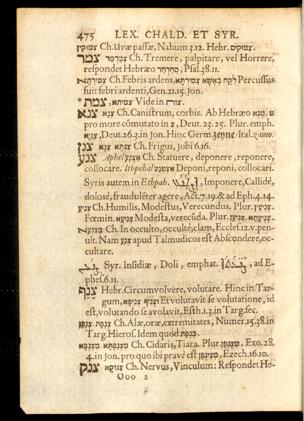 475 LEX. CHALD. ET SYR.
Ch. Uvæ passæ, Nahum 3.12. Hebr. צמוקים.
צמר Ch. Tremere, palpitare, vel Horrere,
respondet Hebræo סחרחר, Psal. 38.11.
Ch. Febris ardens, Percussus
fuit febri ardenti, Gen. 21.15. Jon.
צמת* Vide in צורת.
צנא Ch. Canistrum, corbis. Ab Hebræo טנא
pro more cõmutato in צ, Deut. 23.25. Plur. emph.
Deut. 26.2. in Jon. Hinc Germ Ital.
צנן Ch. Frigus, Jobi 6.16.
צנע Aphel אצנע Ch. Statuere, deponere, reponere,
collocare. Ithpehal Deponi, reponi, collocari.
Syris autem in Ethpah. Imponere, Callidé,
dolosé, fraudulẽter agere, Act. 7.19. & ad Eph. 4.14.
Ch. Humilis, Modestus, Verecundus. Plur.
Fœmin. Modesta, verecũda. Plur.
Ch. In occulto, occultè, clam, Eccles. 12. v. pen-
ult. Nam צנע apud Talmudicos est Abscondere, oc-
cultare.
Syr. Insidiæ, Doli, emphat. ad E-
phes. 6.11.
צנף Hebr. Circumvolvere, volutare. Hinc in Tar-
gum, Et volutavit se volutatione, id
est, volutando se avolavit, Esth. 1.2. in Targ. sec.
Ch. Alæ, oræ, extremitates, Numer. 15.38. in
Targ. Hieros. Idem quod
Ch. Cidaris, Tiara. Plur. Exo. 28.
4. in Jon. pro quo ibi pravè est Ezech. 16.10.
צנק Ch. Nervus, Vinculum: Respondet He-
Ooo 2